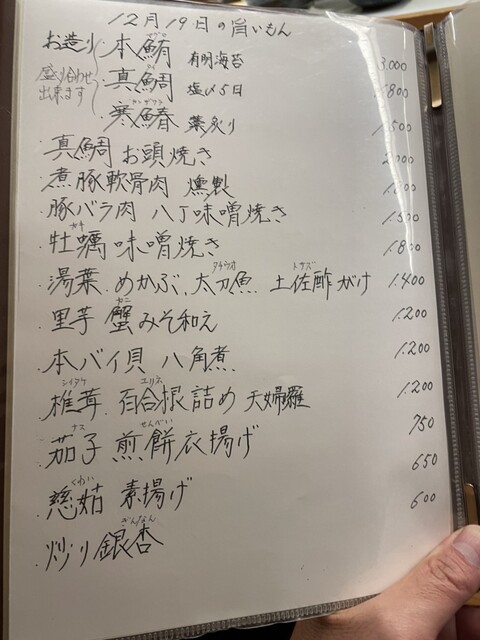 12月19日の旨いもん
お造り 本鮪 マグロ 有明海苔 3,000
盛り合わせ出来ます 真鯛 タイ 塩〆5日 1,800
寒鰆 カンザワラ 藁炙り 1,500
・真鯛 お頭焼き 2,000
・煮豚軟骨肉 燻製 1,200
・豚バラ肉 八丁味噌焼き 1,500
・牡蠣 カキ 味噌焼き 1,800
・湯葉、めかぶ、太刀魚 タチウオ 土佐酢 トサズ がけ 1,400
・里芋 蟹 カニ みそ和え 1,200
・本バイ貝 八角煮 1,200
・椎茸 シイタケ 百合根 ユリネ 詰め 天婦羅 1,200
・茄子 ナス 煎餅 せんべい 衣揚げ 750
・慈姑 くわい 素揚げ 650
・炒り銀杏 ぎんなん 600